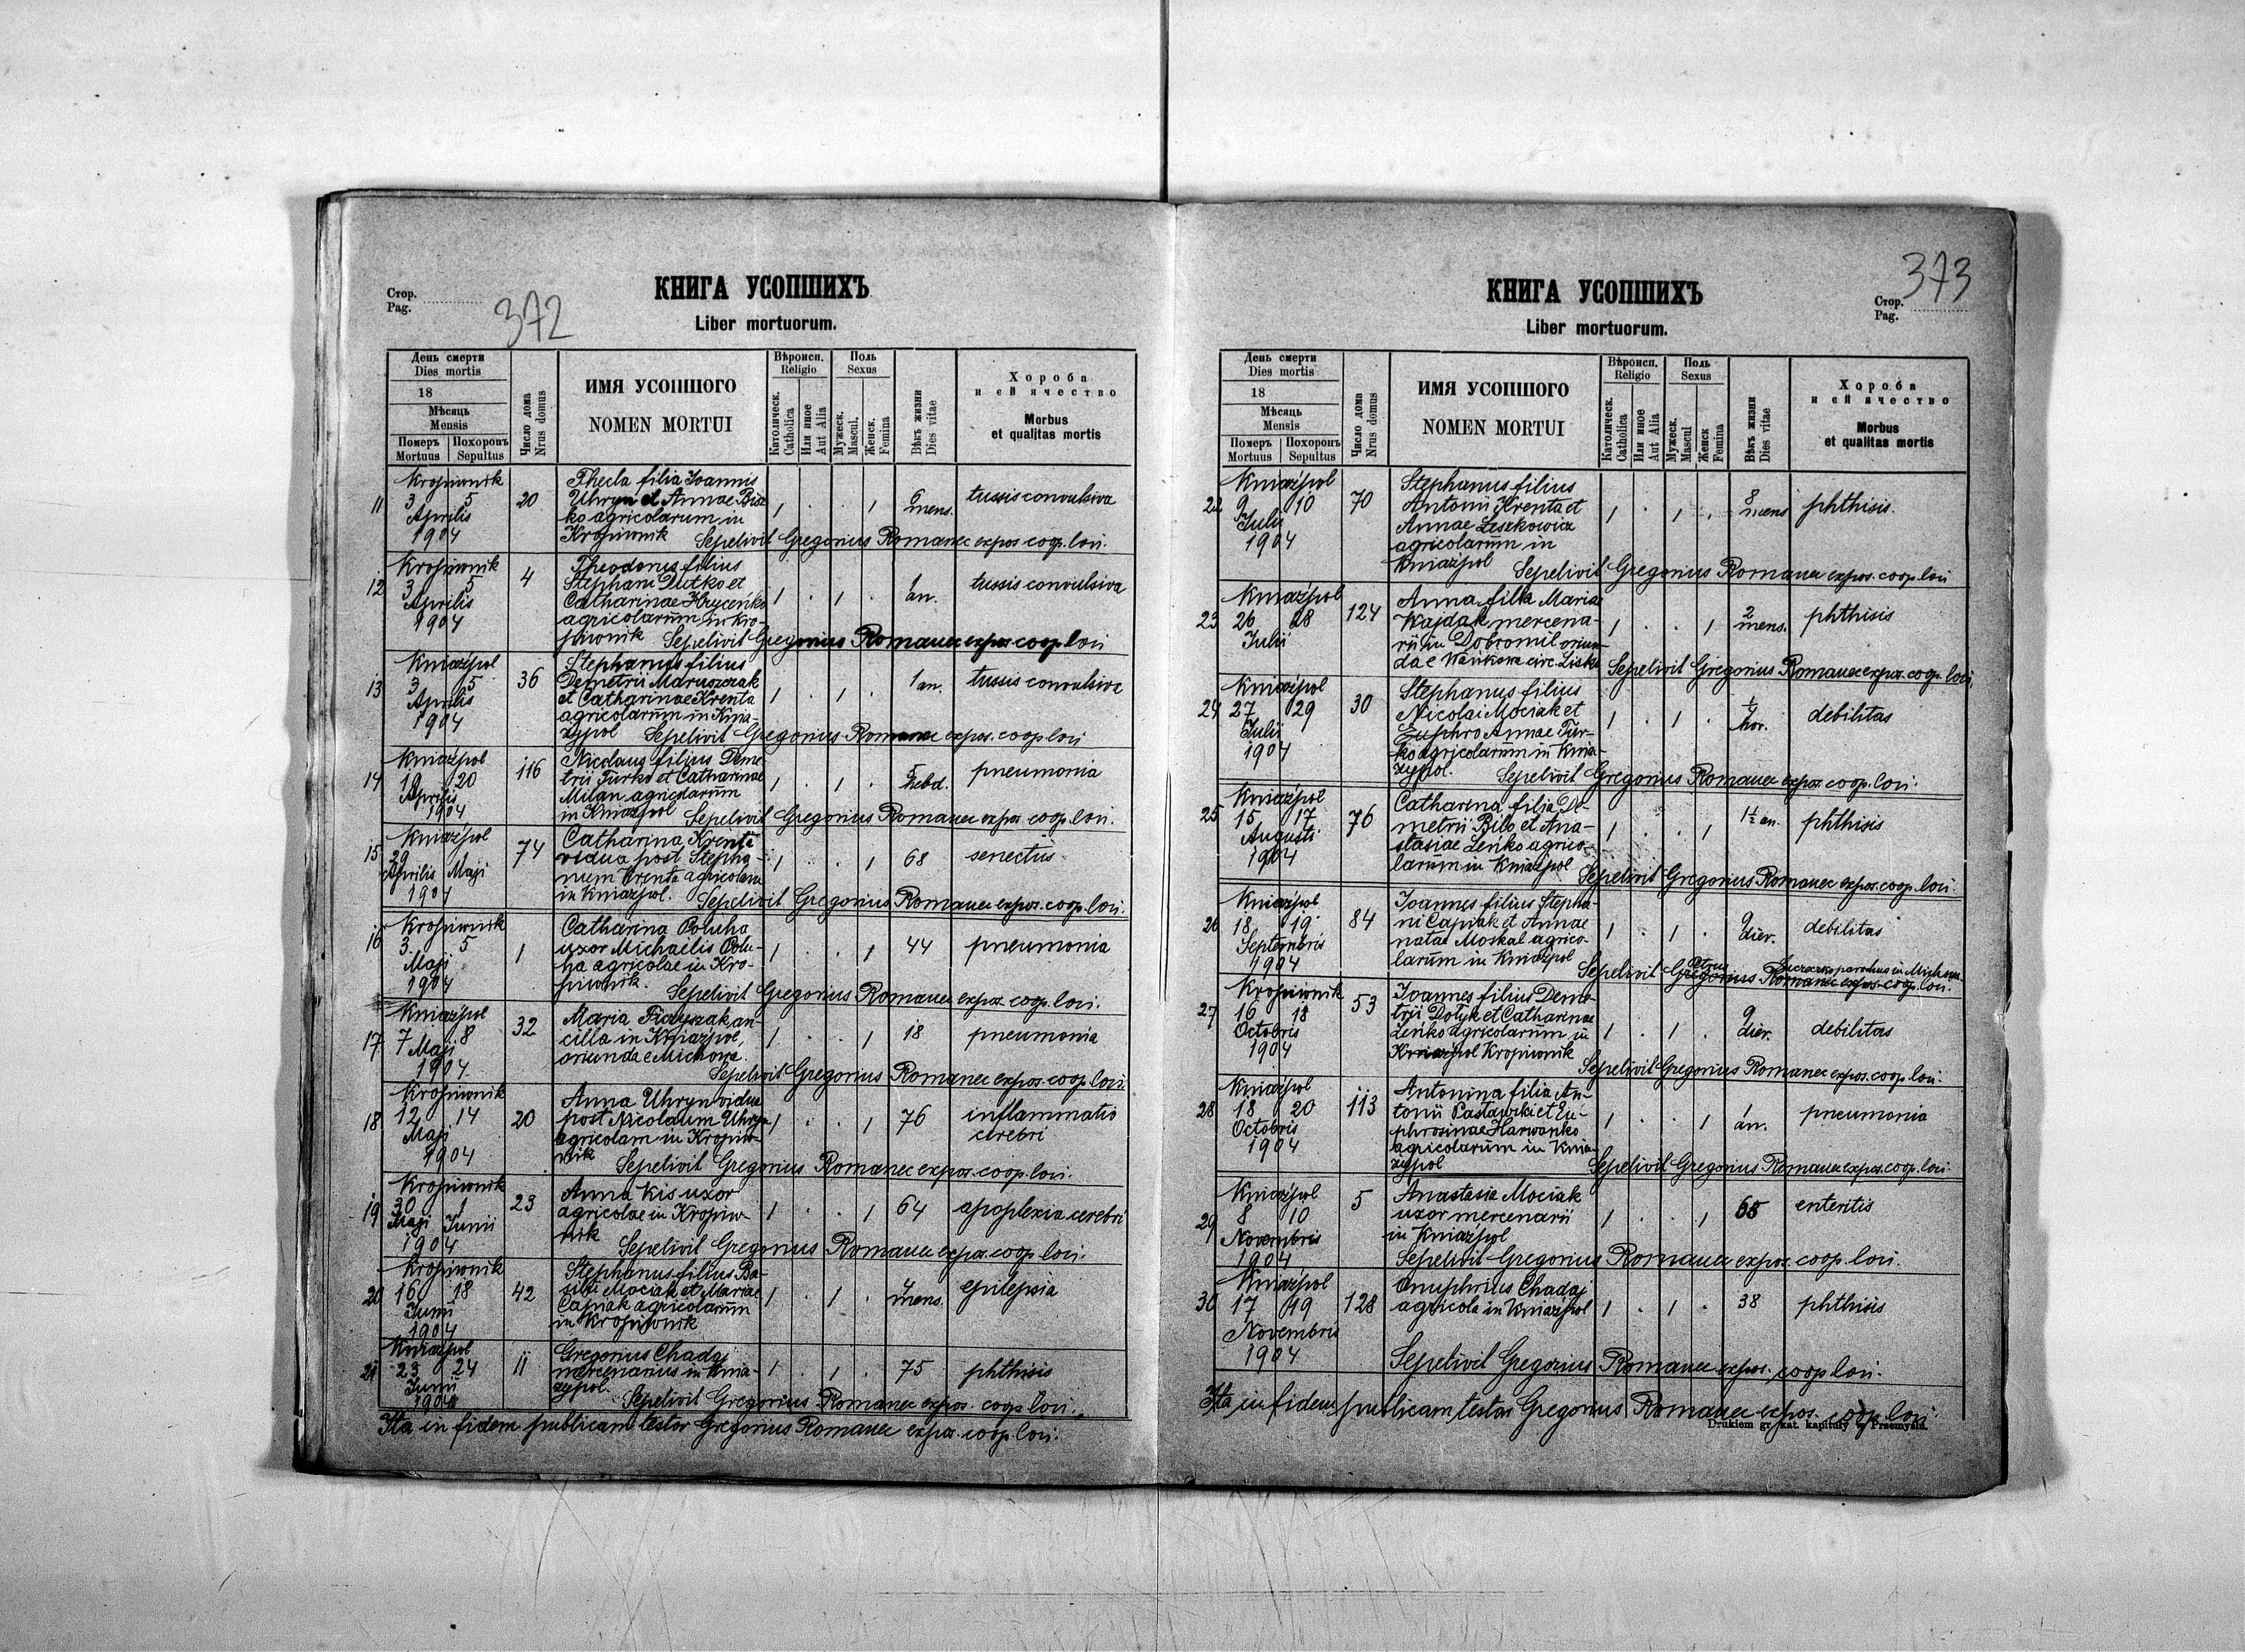 Стор.
Pag.
372
КНИГА УСОПШИХЪ
Liber mortuorum.
День смерти
Dies mortis
18
Мѣсяць
Mensis
Померъ
Mortuus
Похоронъ
Sepultus
Число дома
Nrus domus
ИМЯ УСОПШОГО
NOMEN MORTUI
Вѣроисп.
Religio
Католическ.
Catholica
Или иное
Aut Alia
Поль
Sexus
Мужеск.
Mascul.
Женск.
Femina
Вѣкъ жизни
Dies vitae
Хороба
и ей ячество
Morbus
et qualitas mortis
11
Kropiwnik
3 5
Aprilis
1904
20
Thecla filia Joannis
Uhryn et Annae Bisz
ko agricolarum in
Kropiwnik
1 . . 1
6
mens.
tussis convulsiva
Sepelivit Gregorius Romanec expos. coop. loci.
12
Kropiwnik
3 5
Aprilis
1904
4
Theodorus filius
Stephani Dutko et
Catharinae Hryceńko
agricolarum in Kro-
piwnik
1 . 1 .
1
an.
tussis convulsiva
Sepelivit Gregorius Romanec expos. coop. loci
13
Kniażpol
3 5
Aprilis
1904
36
Stephanus filius
Demetrii Maruszczak
et Catharinae Krenta
agricolarum in Knia-
zypol
1 . 1 .
1 an.
tussis convulsiva
Sepelivit Gregorius Romanec expos. coop. loci
14
Kniażpol
19 20
Aprilis
1904
116
Nicolaus filius Deme
trii Turko et Catharinae
Milan agricolarum
in Kniażpol
1 . 1 .
5
hebd.
pneumonia
Sepelivit Gregorius Romanec expos. coop. loci.
15
Kniażpol
29
Aprilis Maji
1904
74
Catharina Krenta
vidua post Stepha-
num Krenta agricolam
in Kniażpol.
1 . . 1
68
senectus
Sepelivit Gregorius Romanec expos. coop. loci.
16
Kropiwnik
3 5
Maji
1904
1
Catharina Poluha
uxor Michaelis Polu-
ha agricolae in Kro-
piwnik.
1 . . 1
44
pneumonia
Sepelivit Gregorius Romanec expos. coop. loci.
17
Kniażpol
7 8
Maji
1904
32
Maria Ficzyszak an-
cilla in Kniażpol,
oriunda e Michowa.
1 . . 1
18
pneumonia
Sepelivit Gregorius Romanec expos. coop. loci.
18
Kropiwnik
12 14
Maji
1904
20
Anna Uhryn vidua
post Nicolaum Uhryn
agricolam in Kropiw-
nik
1 . . 1
76
inflammatio
cerebri
Sepelivit Gregorius Romanec expos. coop. loci.
19
Kropiwnik
30 1
Maji Junii
1904
23
Anna Kis uxor
agricolae in Kropiw-
nik
1 . . 1
64
apoplexia cerebri
Sepelivit Gregorius Romanec expos. coop. loci.
20
Kropiwnik
16 18
Junii
1904
42
Stephanus filius Ba-
silii Mociak et Mariae
Capiak agricolarum
in Kropiwnik
1 . 1 .
4
mens.
epilepsia
21
Kniażpol
23 24
Junii
1904
11
Gregorius Chadaj
mercenarius in Knia-
zypol.
1 . 1 .
75
phthisis
Sepelivit Gregorius Romanec expos. coop. loci.
Ita in fidem publicam testor Gregorius Romanec expos. coop. loci.
373
КНИГА УСОПШИХЪ
Liber mortuorum.
Стор.
Pag.
День смерти
Dies mortis
18
Мѣсяць
Mensis
Померъ
Mortuus
Похоронъ
Sepultus
Число дома
Nrus domus
ИМЯ УСОПШОГО
NOMEN MORTUI
Вѣроисп.
Religio
Католическ.
Catholica
Или иное
Aut Alia
Поль
Sexus
Мужеск.
Mascul
Женск
Femina
Вѣкъ жизни
Dies vitae
Хороба
и ей ячество
Morbus
et qualitas mortis
22
Kniażpol
9 10
Julii
1904
70
Stephanus filius
Antonii Krenta et
Annae Leszkowicz
agricolarum in
Kniażpol
1 . 1 .
8
mens
phthisis.
Sepelivit Gregorius Romanec expos. coop. loci
23
Kniażpol
26 28
Julii
124
Anna filia Mariae
Wajdak mercena-
rii in Dobromil oriun-
dae Wańkowa circ. Lisko
1 . . 1
2
mens.
phthisis
Sepelivit Gregorius Romanec expos. coop. loci.
24
Kniażpol
27 29
Julii
1904
30
Stephanus filius
Nicolai Mociak et
Euphro Annae Tur-
ko agricolarum in Knia-
zypol.
1 . 1 .
hor.
debilitas
Sepelivit Gregorius Romanec expos. coop. loci.
25
Kniażpol
15 17
Augusti
1904
76
Catharina filia De-
metrii Bilo et Ana-
stasiae Leńko agrico-
larum in Kniażpol
1 . . 1
1½ an.
phthisis
Sepelivit Gregorius Romanec expos. coop. loci.
26
Kniażpol
18 19
Septembris
1904
84
Joannes filius Stepha-
ni Capiak et Annae
natae Moskal agrico-
larum in Kniażpol
1 . 1 .
9
dier.
debilitas
Petrus parochus in Michowa
Sepelivit Gregorius Romanec expos. coop. loci.
27
Kropiwnik
16 18
Octobris
1904
53
Joannes filius Deme-
trii Dotyk et Catharinae
Leńko agricolarum in
Kniażpol Kropiwnik
1 . 1 .
9
dier.
debilitas
Sepelivit Gregorius Romanec expos. coop. loci.
28
Kniażpol
18 20
Octobris
1904
113
Antonina filia An-
tonii Pastawski et Eu-
phrosinae Harwanko
agricolarum in Knia-
zypol
1 . . 1
1
an.
pneumonia
Sepelivit Gregorius Romanec expos. coop. loci.
29
Kniażpol
8 10
Novembris
1904
5
Anastasia Mociak
uxor mercenarii
in Kniażpol
1 . . 1
enteritis
Sepelivit Gregorius Romanec expos. coop. loci.
30
Kniażpol
17 19
Novembris
1904
128
Onuphrius Chadaj
agricola in Kniażpol
1 . 1 .
38
phthisis
Sepelivit Gregorius Romanec expos. coop. loci.
Ita in fidem publicam testor Gregorius Romanec expos. coop. loci.
Drukiem gr. kat. kapituły w Przemyślu.